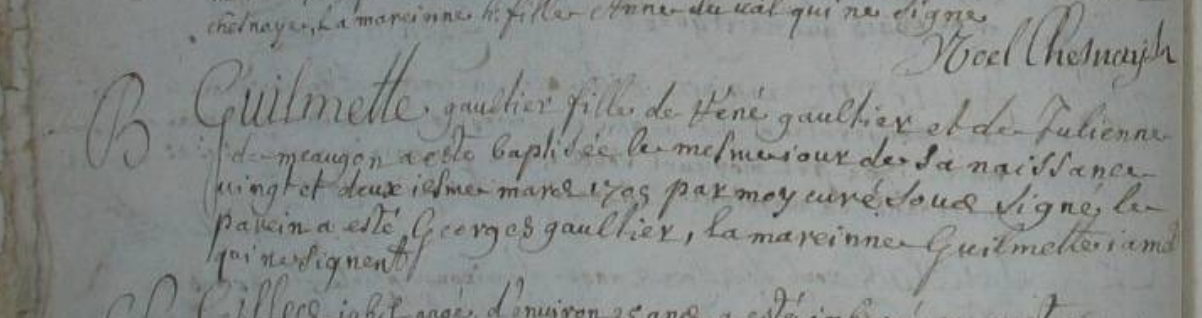 chesnaye, La mareinne h. fille Anne du val qui ne signe
Noel Chesnaye
B Guilmette gaultier fille de Réné gaultier et de Julienne
de meaugon a esté baptisée le mesme jour de sa naissance
vingt et deuxiesme mars 1705 par moy curé sous signé, le
parein a esté Georges gaultier, la mareinne Guilmette
qui ne signent
d'environ ans a esté